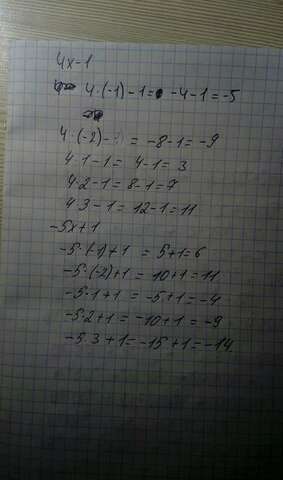 4x-1
4·(-1)-1= -4-1=-5
4·(-2)- = -8-1=-9
4·1-1= 4-1=3
4·2-1=8-1=7
4·3-1=12-1=11
-5x+1
-5·(-1)+1 = 5+1=6
-5·(-2)+1=10+1=11
-5·1+1=-5+1=-4
-5·2+1=-10+1=-9
-5·3+1=-15+1=-14